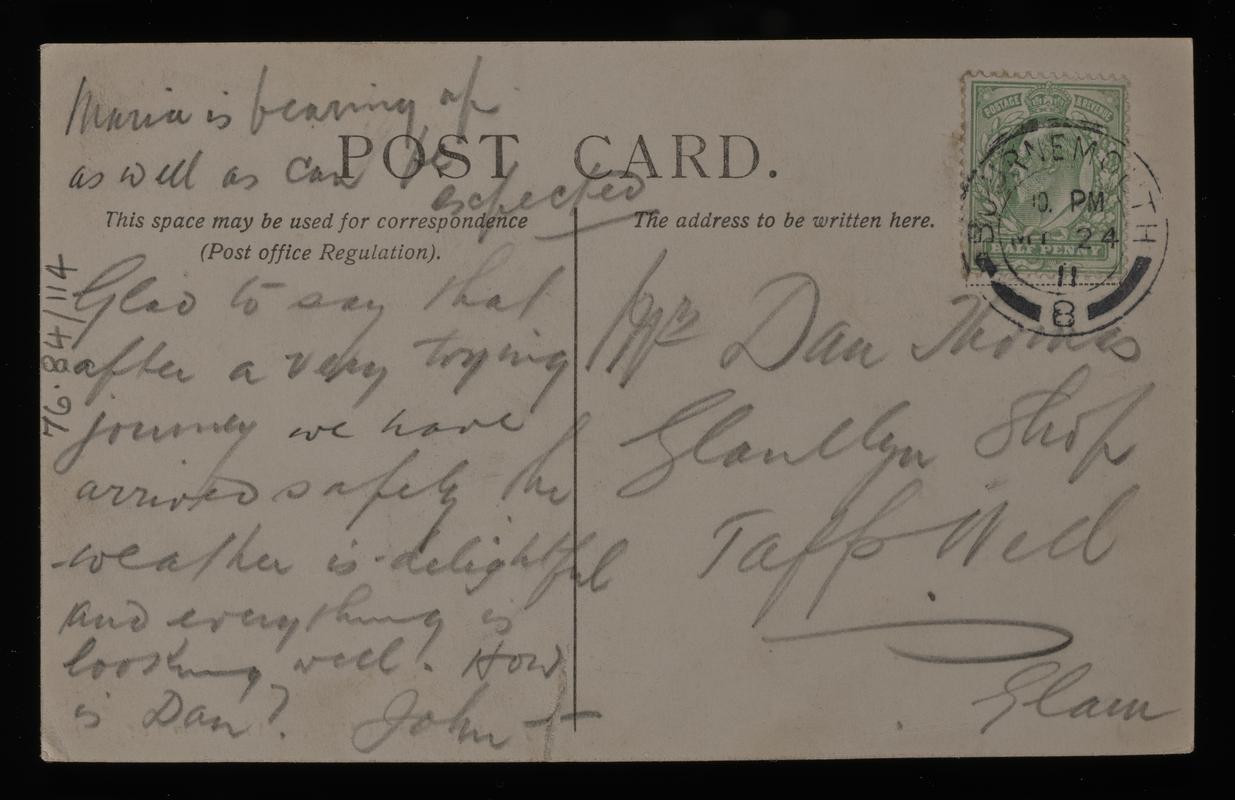 Maria is bearing up
as well as can be
expected
POST CARD.
This space may be used for correspondence
(Post office Regulation).
The address to be written here.
Glad to say that
after a very trying
journey we have
arrived safely the
weather is delightful
and everything is
looking well. How
is Dan? John
76.84/114
Mr Dan Thomas
Glanllyn Shop
Taffs Well
Glam
POSTAGE & REVENUE
HALF PENNY
BOURNEMOUTH
PM
24
11
8